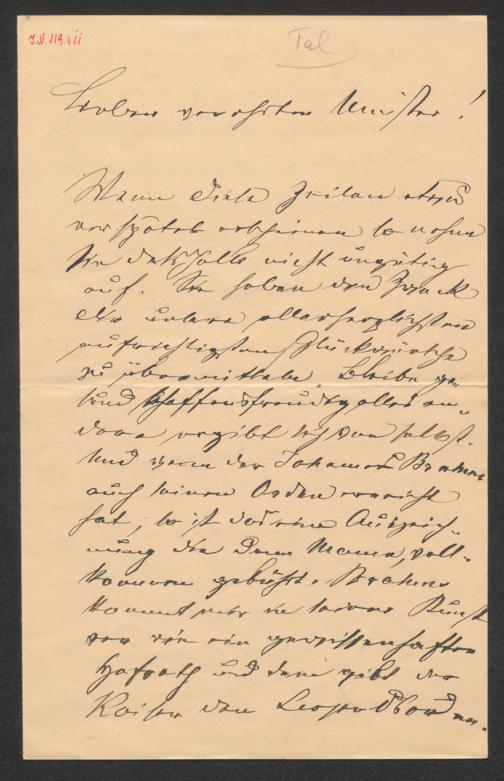 I.N. 119.411
Tal
Lieber verehrter Meister!
Wenn diese Zeilen etwas
verspätet erscheinen so nehmen
Sie desshalb nicht ungütig
auf. Sie haben den Zweck
die unsere allerherzlichsten
aufrichtigsten Glückwünsche
zu übermitteln. Bleibe ge-
sund schaffensfreudig alles an-
dere ergibt sich von selbst.
Und wenn der Johannes Brahms
auch seinen Orden erreicht
hat, so ist das eine Auszeich-
nung die Dem Manne, voll-
kommen gebührt. Brahms
kommt mir in seiner Kunst
vor wie ein gewissenhafter
Hofrath und dem gibt der
Kaiser den Leopoldorden.